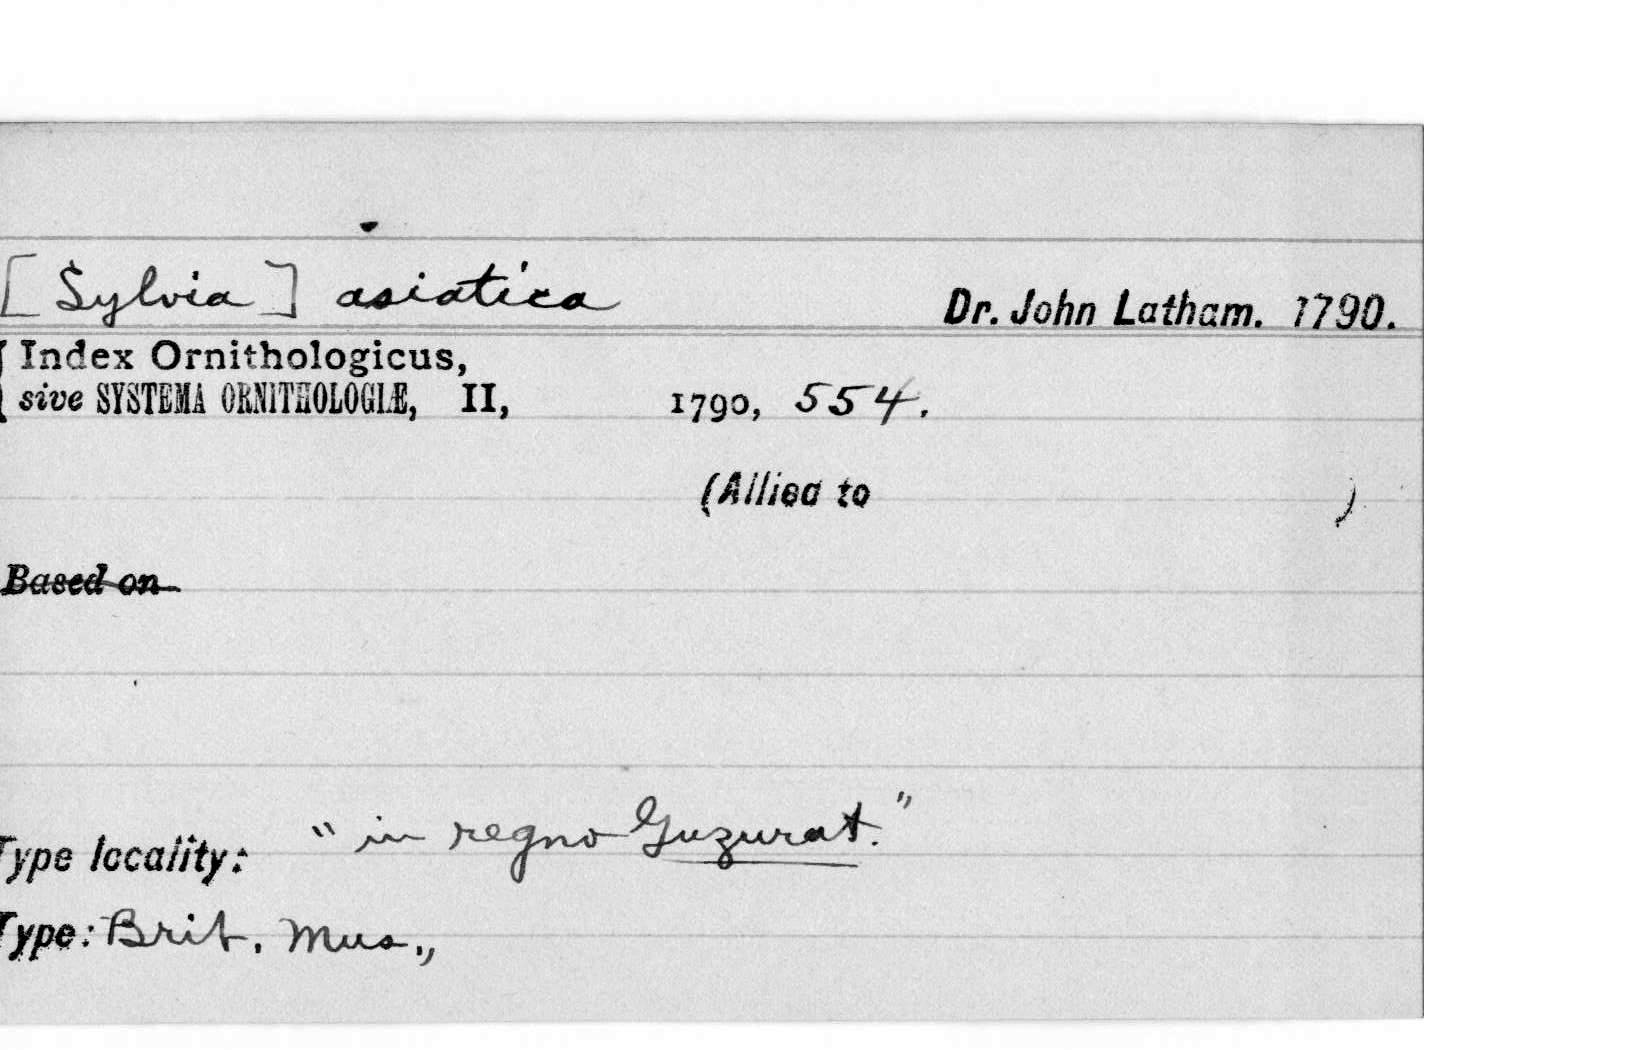 [Sylvia] asiatica Dr. John Latham. 1790.
Index Ornithologicus,
sive SYSTEMA ORNITHOLOGIÆ, II, 1790, 554.
(Allied to )
Based on
Type locality: "in regno Guzurat."
Type: Brit. Mus.,